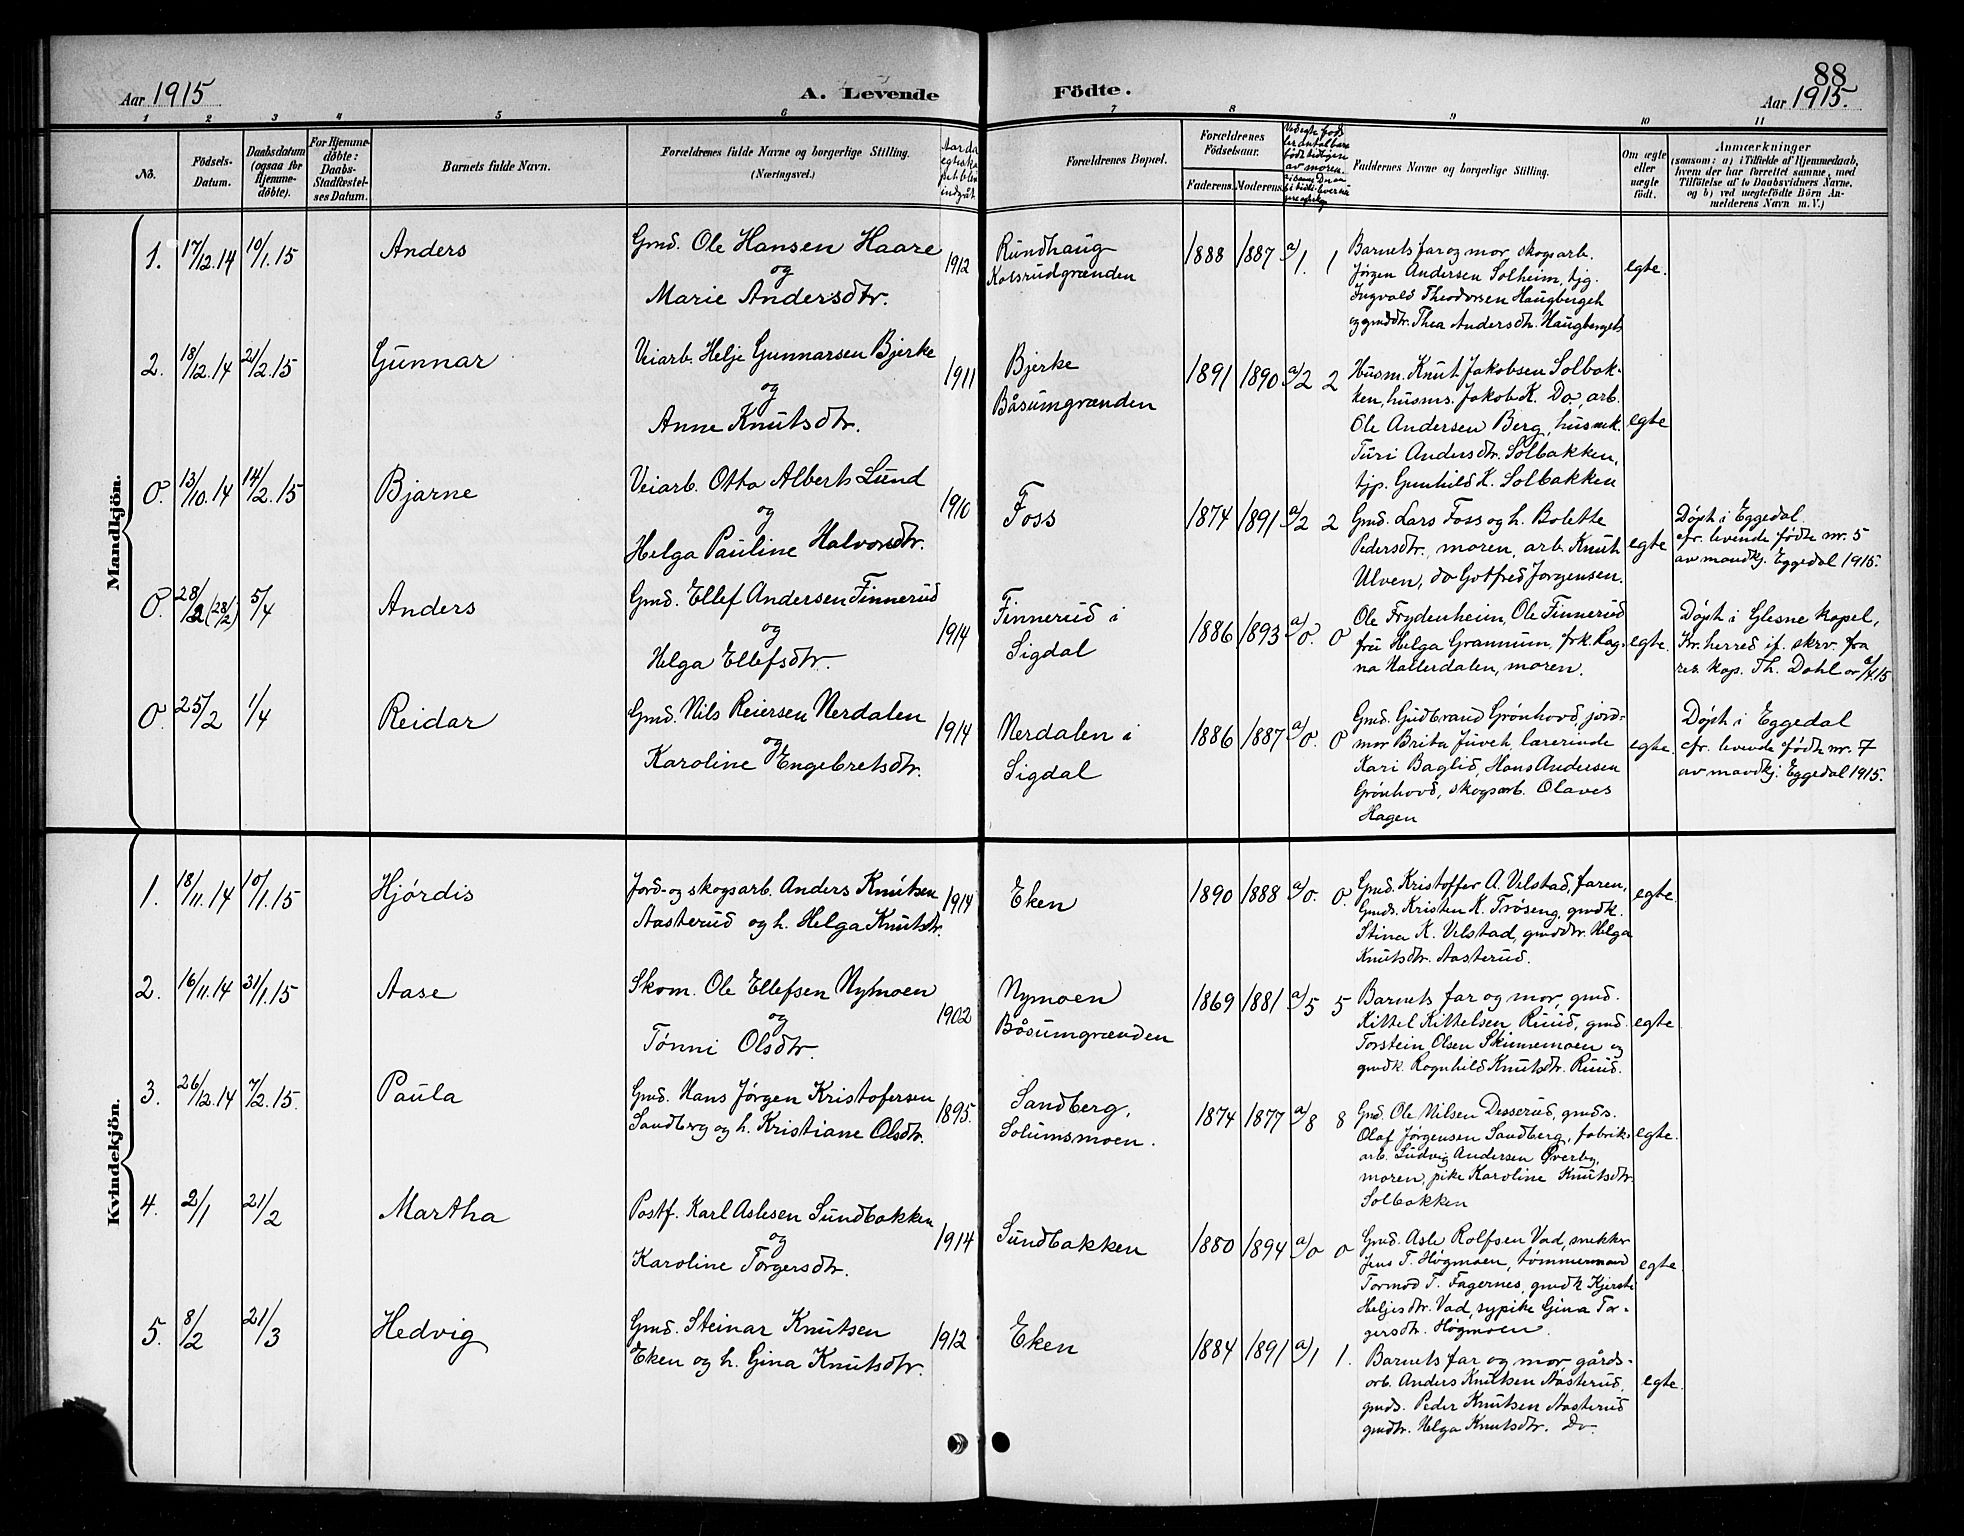 88
Aar 1915
A. Levende
Födte.
Aar 1915.
1 2 3 4 5 6 7 8 9 10 11
No.
Födsels-
Datum.
Daabsdatum
(ogsaa for
Hjemme-
döbte).
For Hjemme-
döbte:
Daabs-
Stadfæstel-
ses Datum.
Barnets fulde Navn.
Forældrenes fulde Navne og borgerlige Stilling.
(Næringsvei.)
Forældrenes Bopæl.
Forældrenes
Födselsaar.
Faderens. Moderens.
Faddernes Navne og borgerlige Stilling.
Om ægte
eller
uægte
født.
Anmærkninger
(saasom: a) i Tilfælde af Hjemmedaab,
hvem der har forrettet samme, med
Tilföielse af to Daabsvidners Navne,
og b) ved uægtefödte Börn An-
melderens Navn m. V.)
Mandkjön.
1. 17/12.14 10/1.15 Anders
Gmd. Ole Hansen Haare
og
Marie Andersdtr.
1912
Rundhaug
Kolsrudgrænden
1888 1887 a/1. 1
Barnets far og mor, skogsarb.
Jørgen Andersen Solheim, tjg.
Ingvald Theodorsen Haugberget
og gmddtr. Thea Andersdtr. Haugberget
egte.
2. 18/12.14 21/2.15 Gunnar
Veiarb. Helje Gunnarsen Bjerke
og
Anne Knutsdtr.
1911
Bjerke
Båsumgrænden
1891 1890 a/2 2
Husm. Knut Jakobsen Solbak-
ken, husms. Jakob K. Do, arb.
Ole Andersen Berg, husmk.
Turi Andersdtr. Solbakken,
tjp. Gunhild K. Solbakken
egte
0. 13/10.14 14/2.15 Bjarne
Veiarb. Otto Alberts Lund
og
Helga Pauline Halvorsdtr.
1910
Foss
1874 1891 a/2 2
Gmd. Lars Foss og h. Bolette
Pedersdtr., moren, arb. Knut
Ulven, do Gotfred Jørgensen.
egte
Døpt i Eggedal
cfr. levende fødte nr. 5
av mandkj. Eggedal 1915.
0. 28/2 (28/2) 5/4 Anders
Gmd. Ellef Andersen Finnerud
og
Helga Ellefsdtr.
1914
Finnerud i
Sigdal
1886 1893 a/0. 0
Ole Frydenheim, Ole Finnerud
fru Helga Granum, frk. Rag-
na Hallerdalen, moren.
egte.
Døpt i Glesne kapel,
Kr. herred if. skrv. fra
res. kap. Th. Dahl
0. 25/2 1/4 Reidar
Gmd. Nils Reiersen Nerdalen
og
Karoline Engebretsdtr.
1914
Nerdalen i
Sigdal
1886 1887 a/0. 0
Gmd. Gudbrand Grønhovd, jord-
mor Brita Juveh, lærerinde
Kari Baglid, Hans Andersen
Grønhovd, skogsarb. Olaves
Hagen
egte.
Døpt i Eggedal
cfr. levende fødte nr. 7
av mandkj. Eggedal 1915.
Kvindekjön.
1. 18/11.14 10/1.15 Hjørdis
Jord- og skogsarb. Anders Knutsen
Aasterud og h. Helga Knutsdtr.
1914
Eken
1890 1888 a/0. 0.
Gmd. Kristoffer A. Velstad, faren,
Gmds. Kristen K. Trøseng, gmdk.
Stina K. Velstad, gmddtr. Helga
Knutsdtr. Aasterud.
egte.
2. 16/11.14 31/1.15 Aase
Skom. Ole Ellefsen Nymoen
og
Tønni Olsdtr.
1902
Nymoen
Båsumgrænden
1869 1881 a/5 5
Barnets far og mor, gmd.
Kittel Kittelsen Ruud, gmd.
Torstein Olsen Skinnemoen og
gmdk. Ragnhild Knutsdtr. Ruud.
egte
3. 26/12.14 7/2.15. Paula
Gmd. Hans Jørgen Kristofersen
Sandberg og h. Kristiane Olsdtr.
1895.
Sandberg,
Solumsmoen.
1874 1877 a/8 8
Gmd. Ole Nilsen Desserud, gmds.
Olaf Jørgensen Sandberg, fabrik-
arb. Ludvig Andersen Øverby,
moren, pike Karoline Knutsdtr.
Solbakken
egte.
4. 2/1 21/2 Martha
Postf. Karl Aslesen Sundbakken
og
Karoline Torgersdtr.
1914
Sundbakken
1880 1894 a/0 0
Gmd. Asle Rolfsen Vad, snekker
Jens T. Høgmoen, tømmermand
Tormod T. Fagernes, gmdk Kjersti
Heljesdtr. Vad, sypike Gina Tor-
gersdtr. Høgmoen.
egte.
5. 8/2 21/3 Hedvig
Gmd. Steinar Knutsen
Eken og h. Gina Knutsdtr.
1912
Eken
1884 1891 a/1 1.
Barnets far og mor, gårds-
arb. Anders Knutsen Aasterud,
gmds. Peder Knutsen Aasterud
gmdtr. Helga Knutsdtr. Do.
egte.